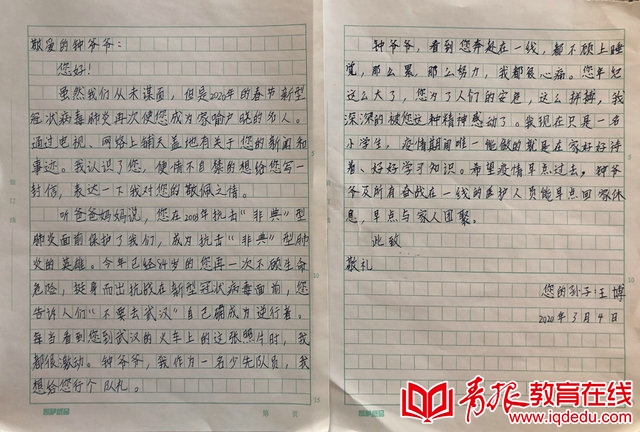 敬爱的钟爷爷:
您好!
虽然我们从未谋面,但是2020年的春节新型
冠状病毒肺炎再次使您成为家喻户晓的名人。
通过电视、网络上铺天盖地有关于您的新闻和
事迹。我认识了您,便情不自禁的想给您写一
封信,表达一下我对您的敬佩之情。
听爸爸妈妈说,您在2003年抗击“非典”型
肺炎面前保护了我们,成为抗击“非典”型肺
炎的英雄。今年已经84岁的您再一次不顾生命
危险,挺身而出抗战在新型冠状病毒面前,您
告诉人们“不要去武汉”自己确成为逆行者。
每当看到您到武汉的火车上的这张照片时,我
都很激动。钟爷爷,我作为一名少先队员,我
想给您行个队礼。
钟爷爷,看到您奔赴在一线,都不顾上睡
觉,那么累,那么努力,我都很心痛。您年纪
这么大了,您为了人们的安危,这么拼搏,我
深深的被您这种精神感动了。我现在只是一名
小学生,疫情期间唯一能做的就是在家好好待
着、好好学习知识。希望疫情早点过去,钟爷
爷及所有奋战在一线的医护人员能早点回家休
息,早点与家人团聚。
此致
敬礼
您的孙子:王博
2020年3月4日
5
10
15
第 页
5
10
青报教育在线
www.iqdedu.com